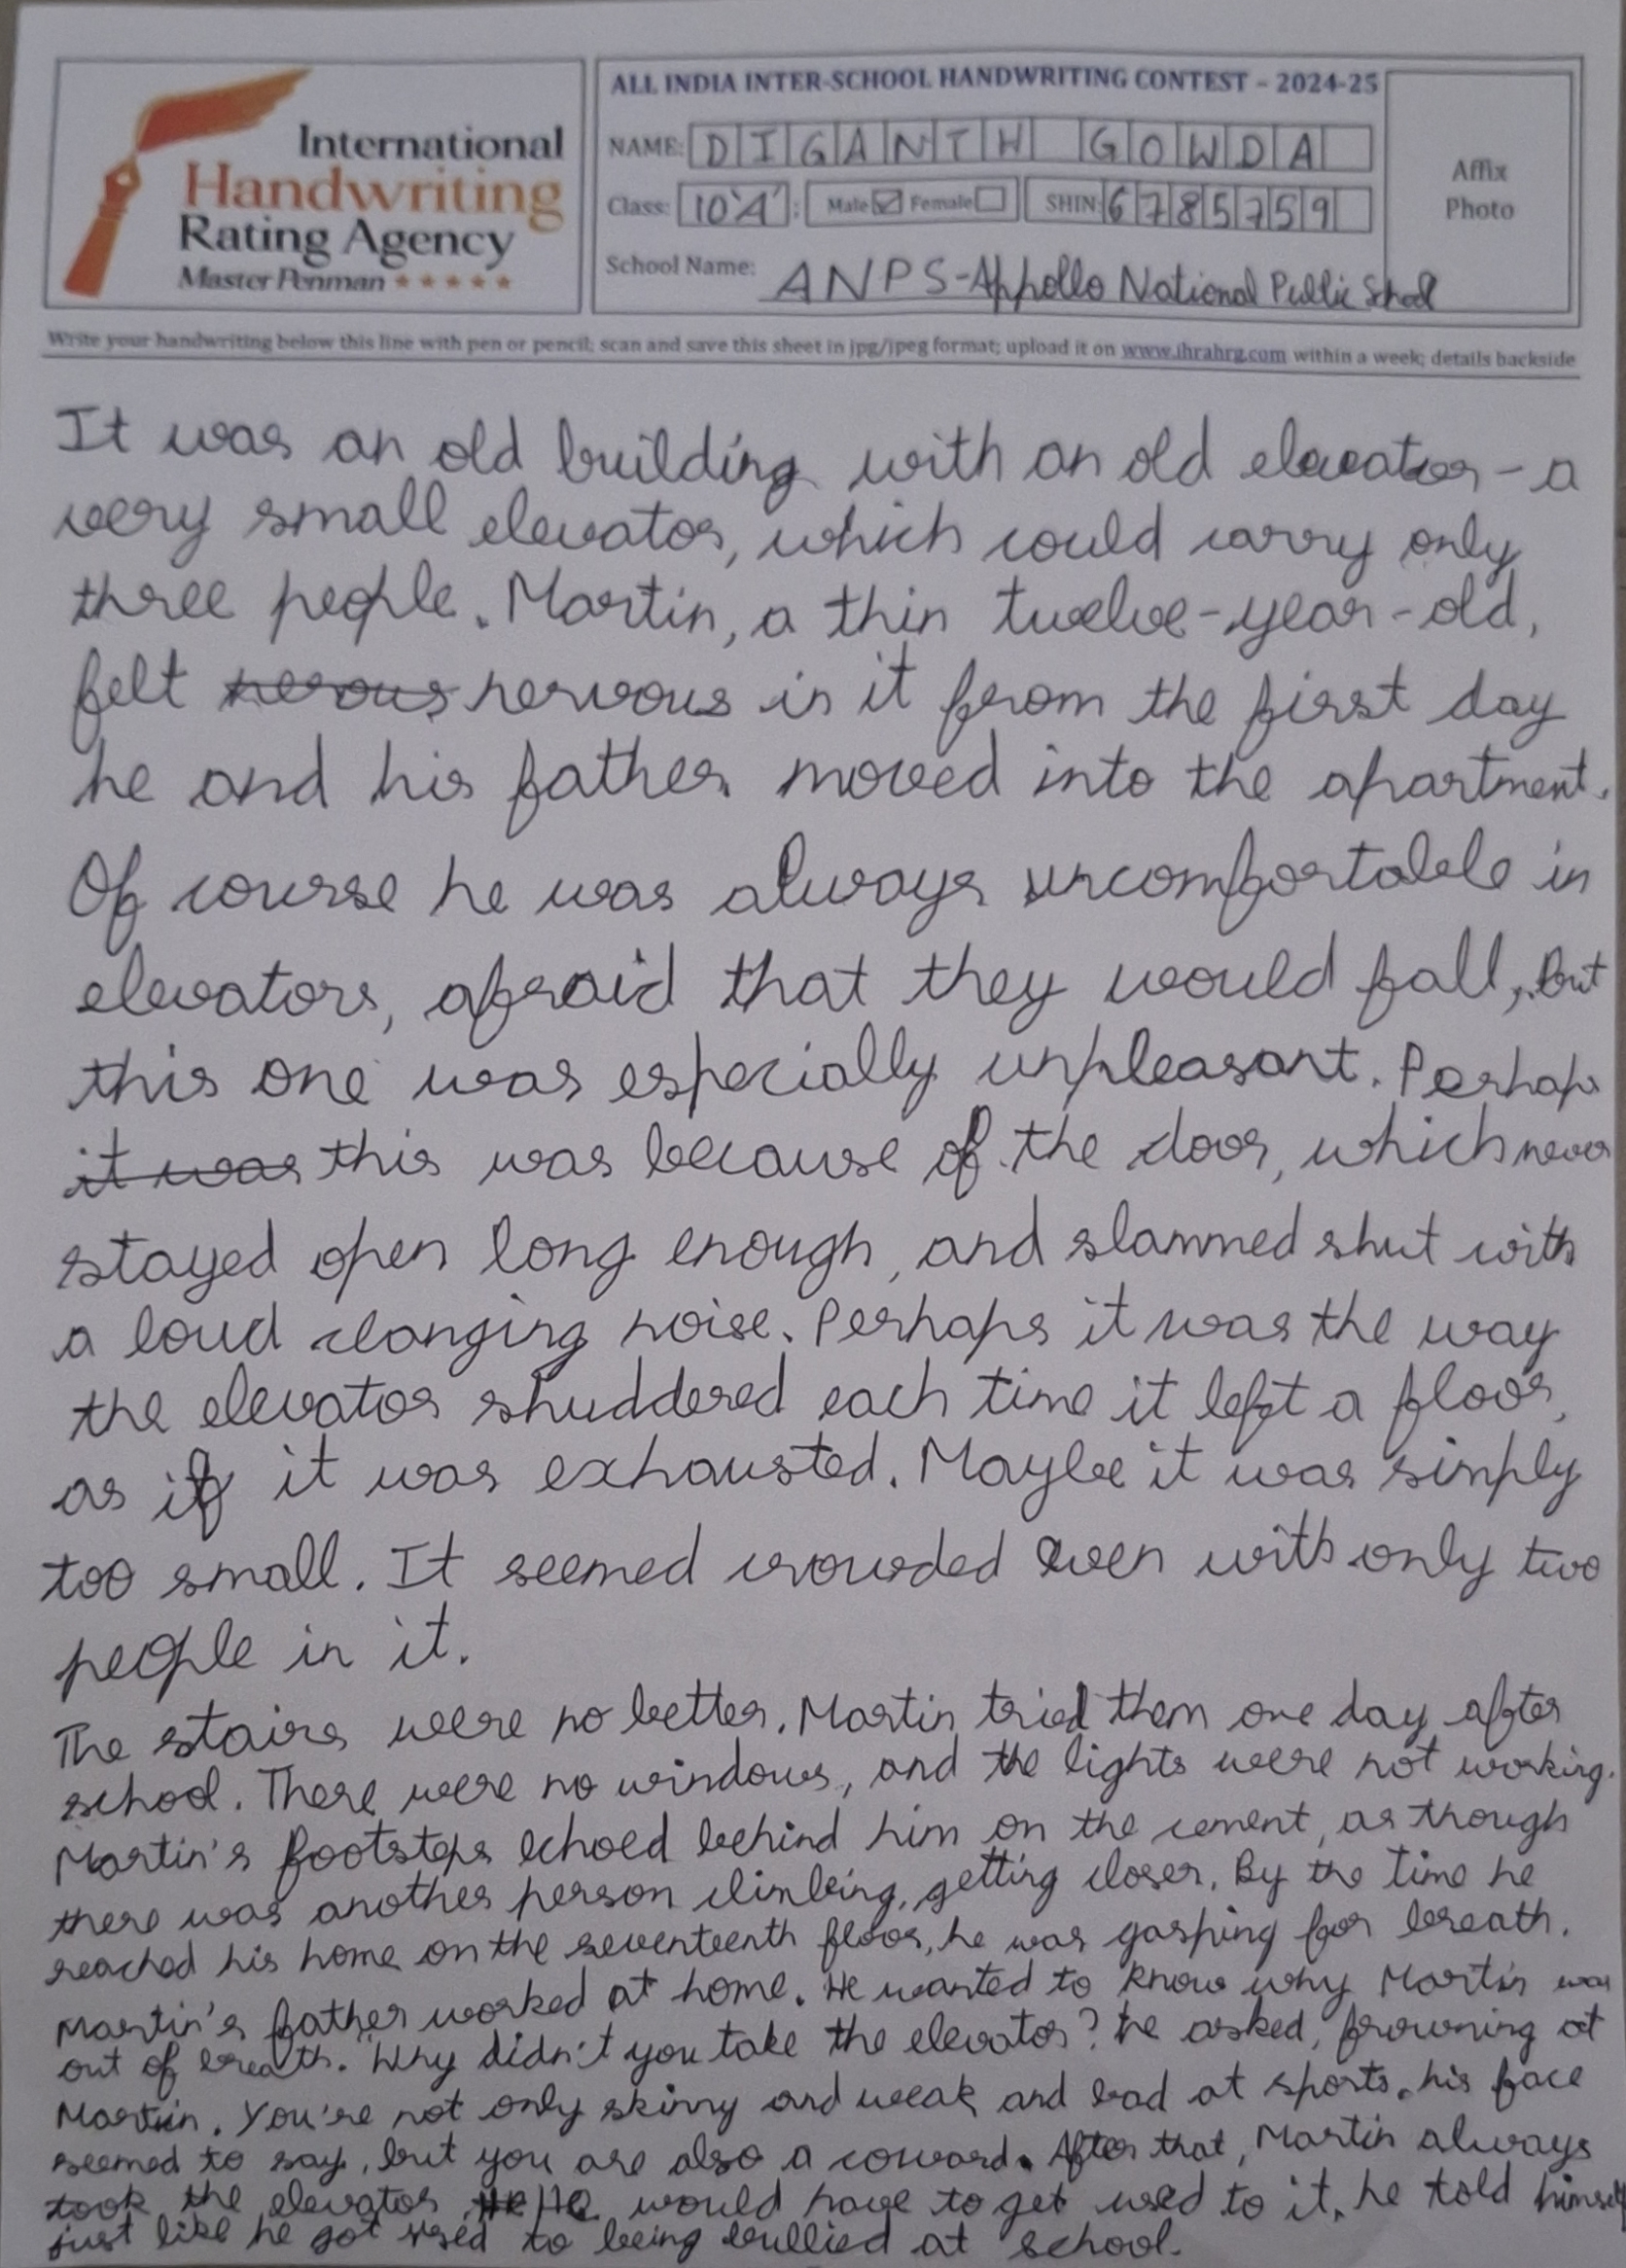 International
Handwriting
Rating Agency
Master Penman ★★★★★
ALL INDIA INTER-SCHOOL HANDWRITING CONTEST - 2024-25
NAME: DIGANTH GOWDA
Class: 10 'A' : Male ☑ Female ☐ SHIN: 6785759
School Name: ANPS-Appollo National Public School
Affix
Photo
Write your handwriting below this line with pen or pencil; scan and save this sheet in jpg/jpeg format; upload it on www.ihrahrg.com within a week; details backside
It was an old building with an old elevator - a
very small elevator, which could carry only
three people. Martin, a thin twelve-year-old,
felt nerous nervous in it from the first day
he and his father moved into the apartment.
Of course he was always uncomfortable in
elevators, afraid that they would fall, but
this one was especially unpleasant. Perhaps
it was this was because of the door, which never
stayed open long enough, and slammed shut with
a loud clanging noise. Perhaps it was the way
the elevator shuddered each time it left a floor,
as if it was exhausted. Maybe it was simply
too small. It seemed crowded even with only two
people in it.
The stairs were no better. Martin tried them one day after
school. There were no windows, and the lights were not working.
Martin's footsteps echoed behind him on the cement, as though
there was another person climbing, getting closer. By the time he
reached his home on the seventeenth floor, he was gasping for breath.
Martin's father worked at home. He wanted to know why Martin was
out of breath. "Why didn't you take the elevator? he asked, frowning at
Martin. You're not only skinny and weak and bad at sports. his face
seemed to say, but you are also a coward. After that, Martin always
took the elevator. He He would have to get used to it, he told himself
just like he got used to being bullied at school.